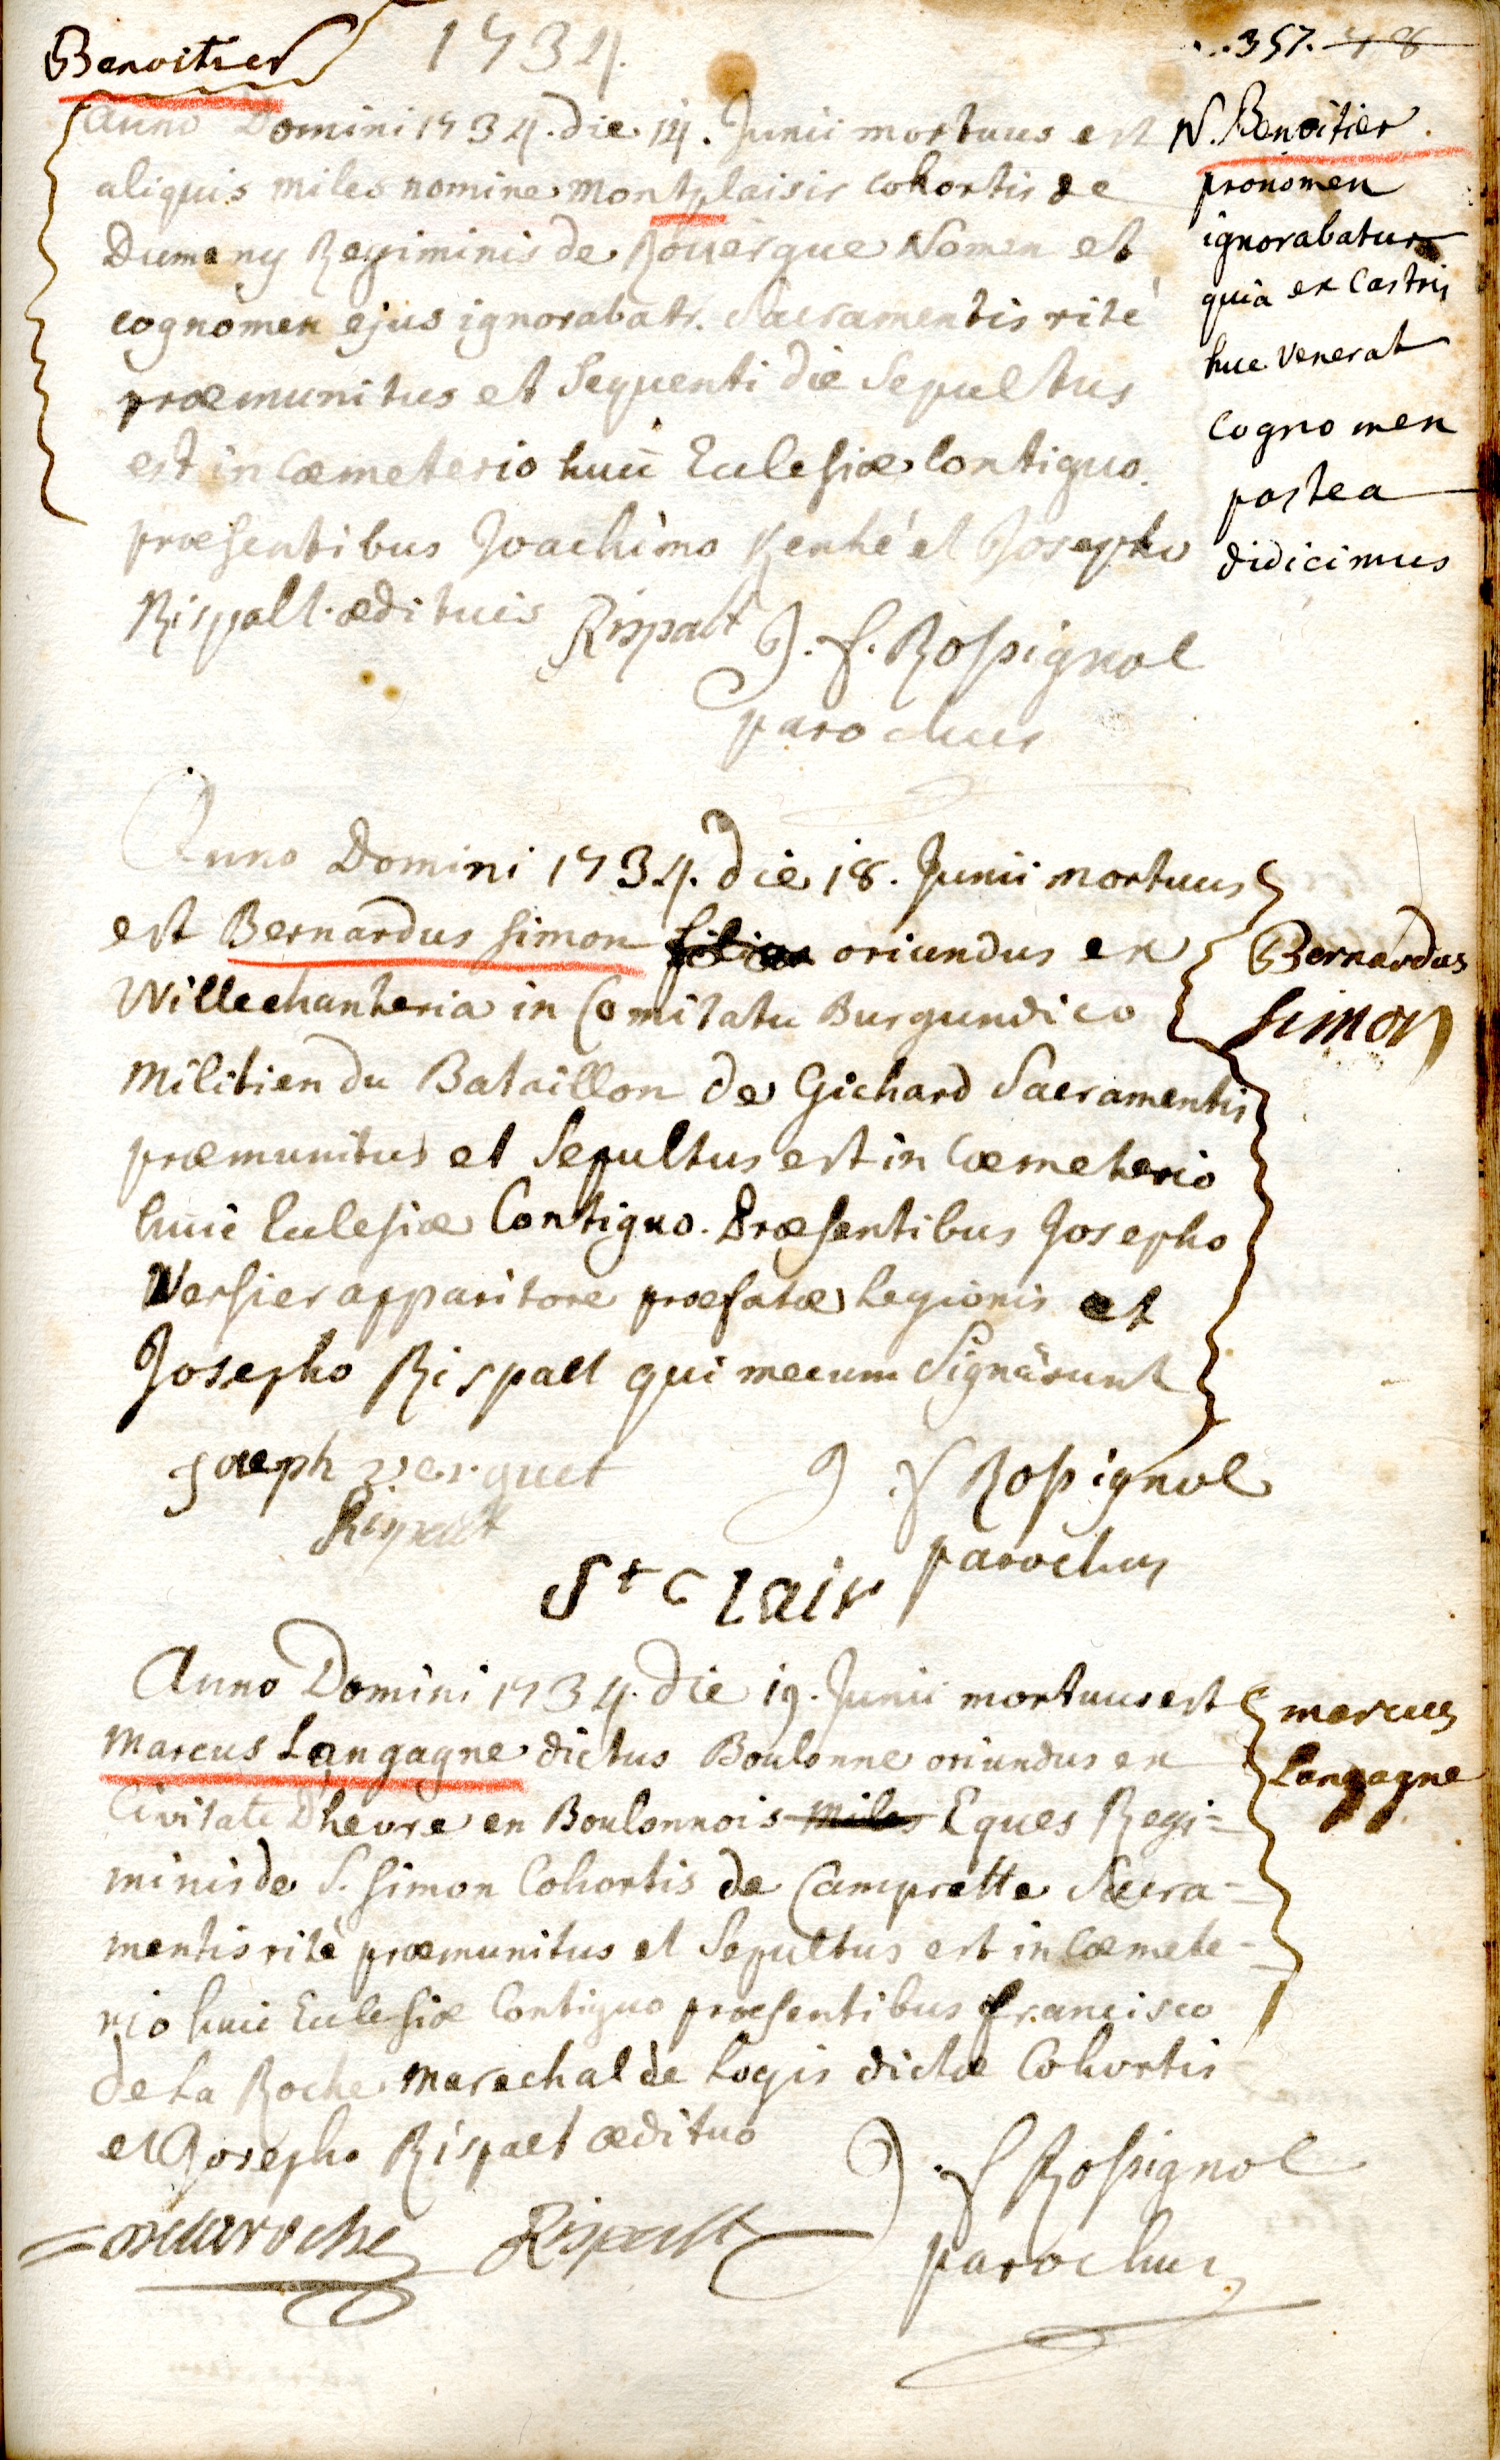 Benoitier
1734.
357. 48
Anno Domini 1734. die 14. Junii mortuus est
aliquis miles nomine Montplaisir Cohortis de
Dumeny Regiminis de Rouergue Nomen et
cognomen ejus ignorabatr. Sacramentis rité
præmunitus et sequenti die Sepultus
est in Cæmeterio huic Ecclesiæ Contiguo.
præsentibus Joachimo Kenhé et Josepho
Rispalt ædituis Rispalt J. f. Rossignol
parochus
N. Benoitier
pronomen
ignorabatur
quia ex Castris
huc venerat
Cognomen
postea
didicimus
Anno Domini 1734. die 18. Junii mortuus
est Bernardus Simon oriundus ex
Willechanteria in Comitatu Burgundico
Militien du Bataillon de Gichard Sacramentis
præmunitus et Sepultus est in Cæmeterio
huic Ecclesiæ Contiguo. Præsentibus Josepho
Versier apparitore præfatæ Legionis et
Josepho Rispalt qui mecum Signârunt
Bernardus
Simon
Joseph verguet J f Rossignol
Rispalt
parochus
St Clair
Anno Domini 1734. die 19. Junii mortuus est
Marcus Langagne dictus Boulonne oriundus ex
Civitate Dhevre en Boulonnois Miles Eques Regi=
minis de S. Simon Cohortis de Camprette Sacra=
mentis rité præmunitus et Sepultus est in Cæmete-
rio huic Ecclesiæ Contiguo præsentibus francisco
de La Roche Marechal de Logis dictæ Cohortis
et Josepho Rispalt ædituo
marcus
Langagne
J. f Rossignol
delaroche Rispalt
parochus